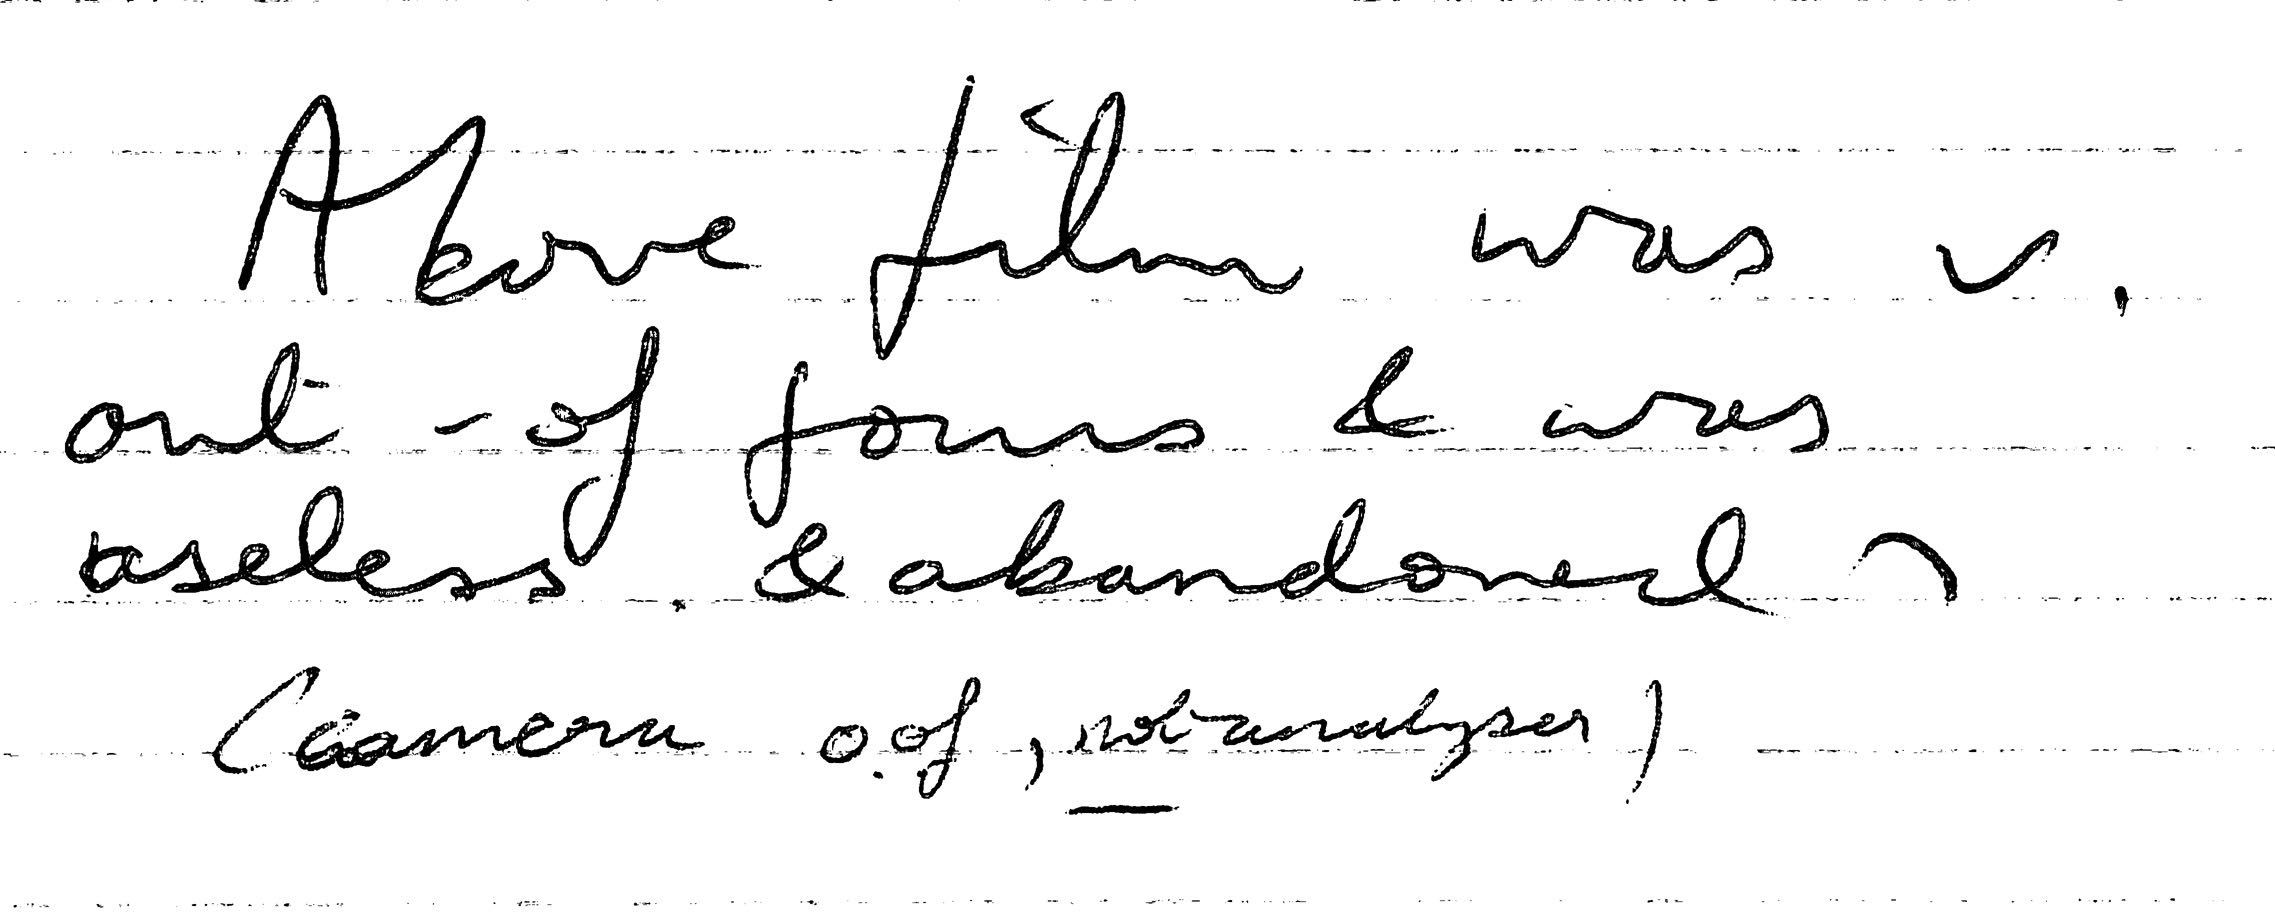 Above film was v.
out-of focus & was
useless. & abandoned
(camera o.of, not analyser)